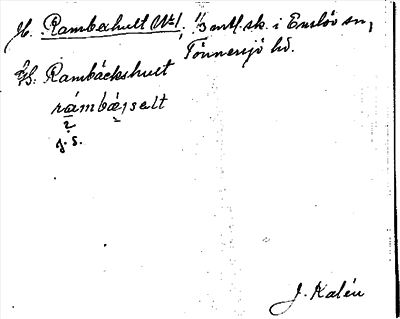 H. Ramberhult Nr 1, 1/3 mtl. sk. i Enslöv sn,
Tönnersjö hd.
Rambäckshult
rámbæ̀ɪselt
g. s.
J. Kalén